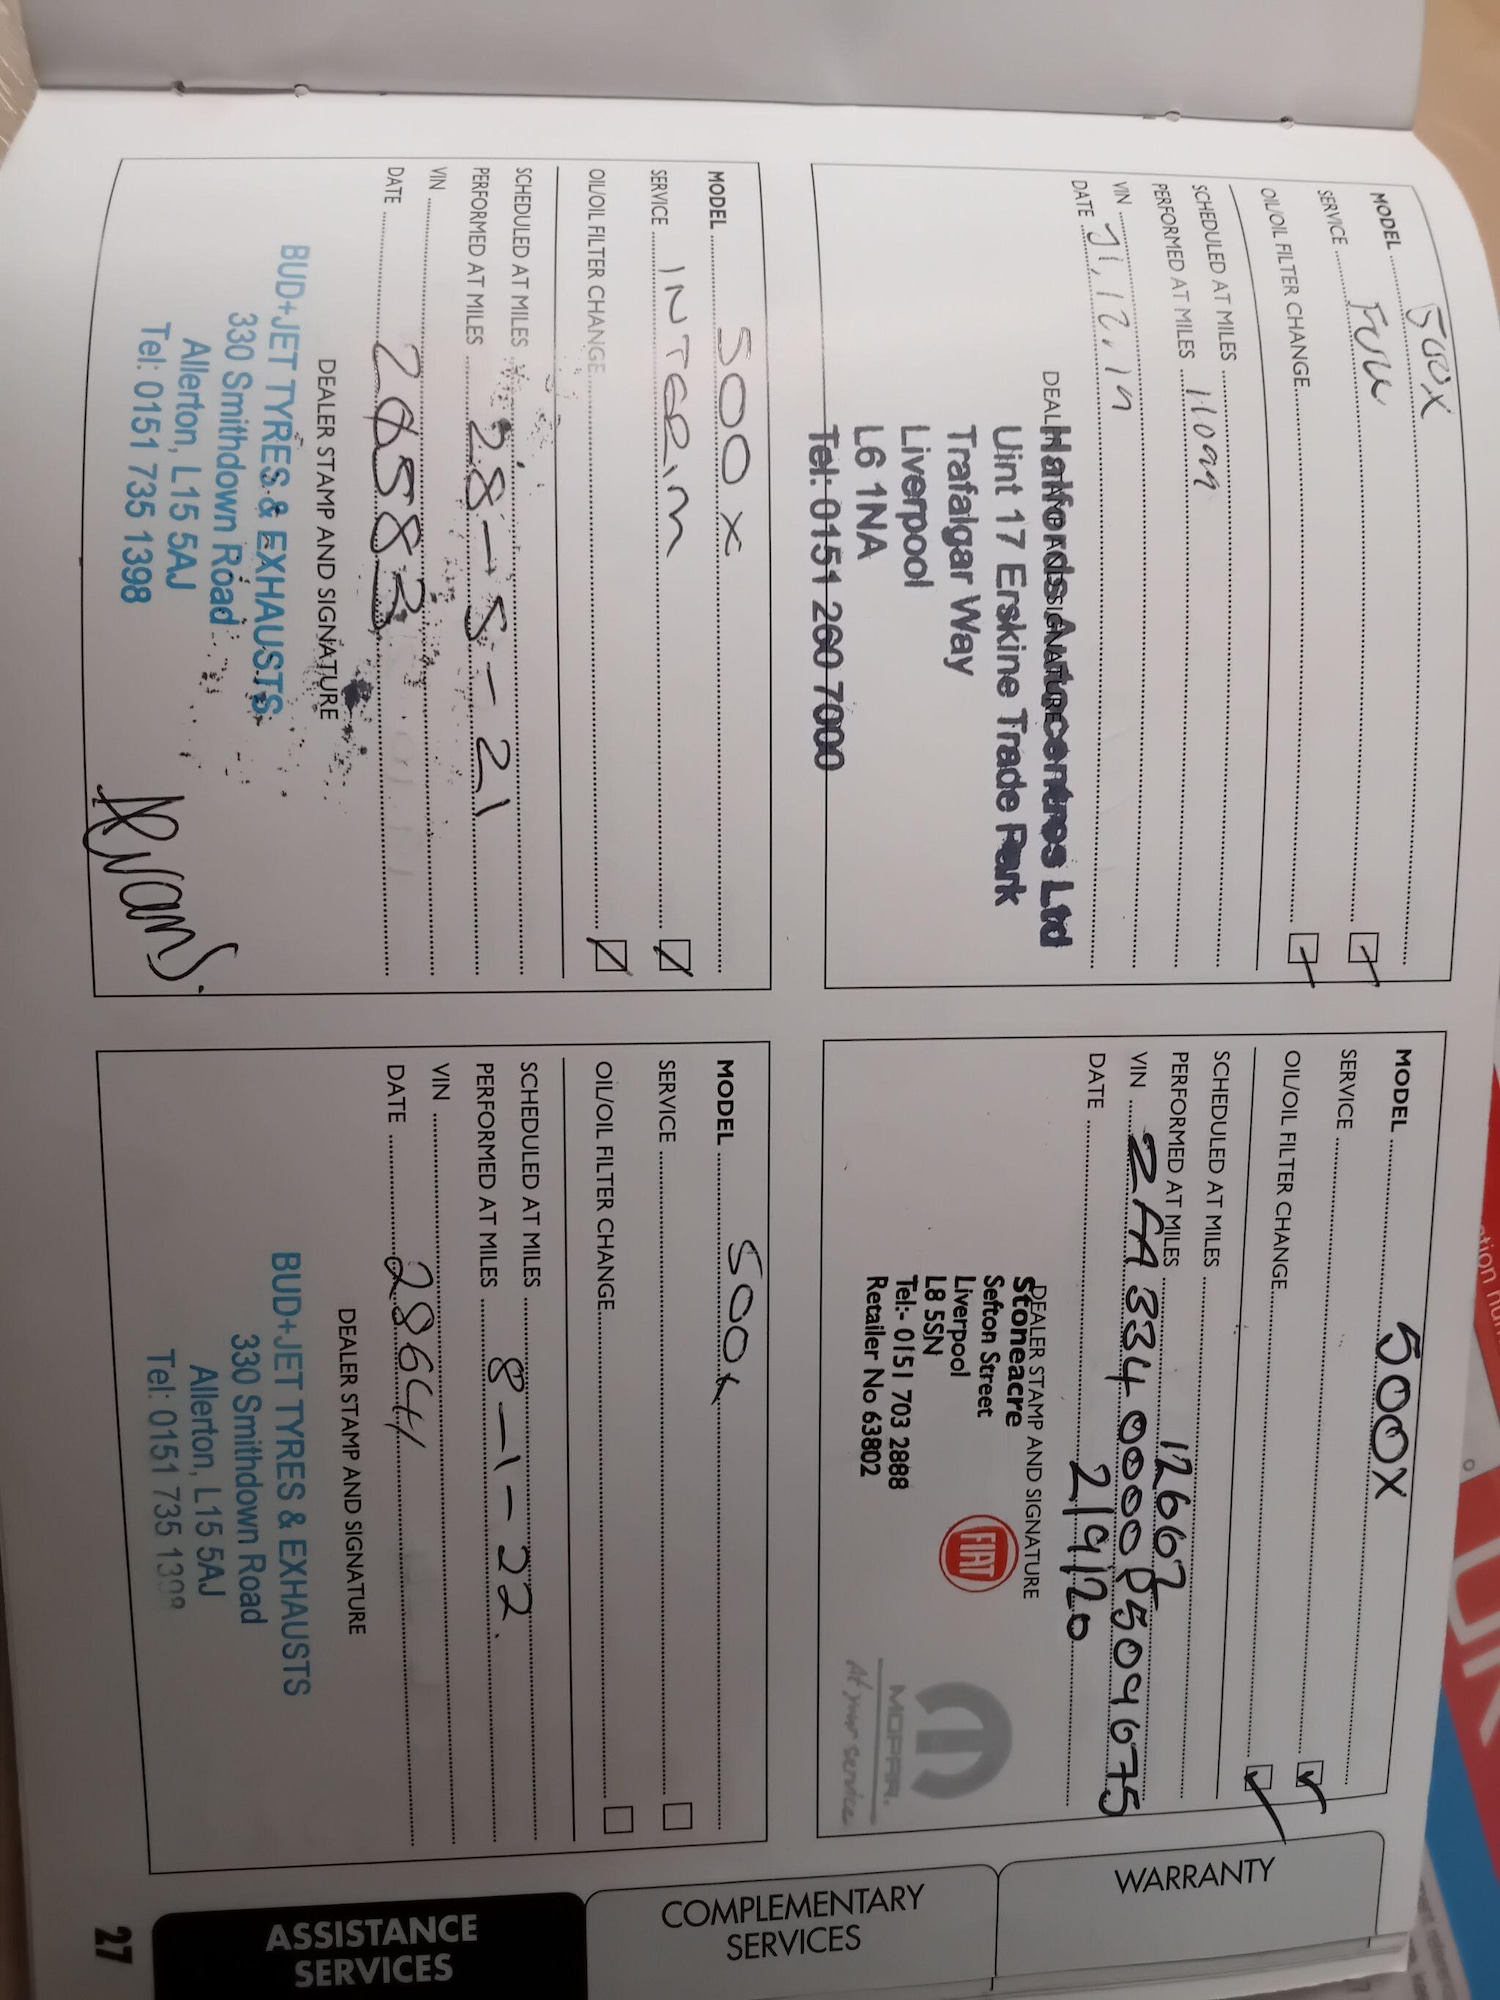 MODEL 500x
SERVICE Full
OIL/OIL FILTER CHANGE
SCHEDULED AT MILES
PERFORMED AT MILES 11099
VIN
DATE 31.12.19
DEALER STAMP AND SIGNATURE
Halfords Autocentres Ltd
Uint 17 Erskine Trade Park
Trafalgar Way
Liverpool
L6 1NA
Tel: 0151 260 7000
MODEL 500X
SERVICE
OIL/OIL FILTER CHANGE
SCHEDULED AT MILES
PERFORMED AT MILES 12662
VIN ZFA3340000P509675
DATE 2/9/20
DEALER STAMP AND SIGNATURE
Stoneacre
Sefton Street
Liverpool
L8 5SN
Tel:- 0151 703 2888
Retailer No 63802
FIAT
MOPAR.
At your service
MODEL 500x
SERVICE INTERIM
OIL/OIL FILTER CHANGE
SCHEDULED AT MILES
PERFORMED AT MILES 28-5-21
VIN
DATE 26583
DEALER STAMP AND SIGNATURE
BUD+JET TYRES & EXHAUSTS
330 Smithdown Road
Allerton, L15 5AJ
Tel: 0151 735 1398
MODEL 500x
SERVICE
OIL/OIL FILTER CHANGE
SCHEDULED AT MILES
PERFORMED AT MILES 8-1-22.
VIN
DATE 28641
DEALER STAMP AND SIGNATURE
BUD+JET TYRES & EXHAUSTS
330 Smithdown Road
Allerton, L15 5AJ
Tel: 0151 735 1398
WARRANTY
COMPLEMENTARY
SERVICES
ASSISTANCE
SERVICES
27